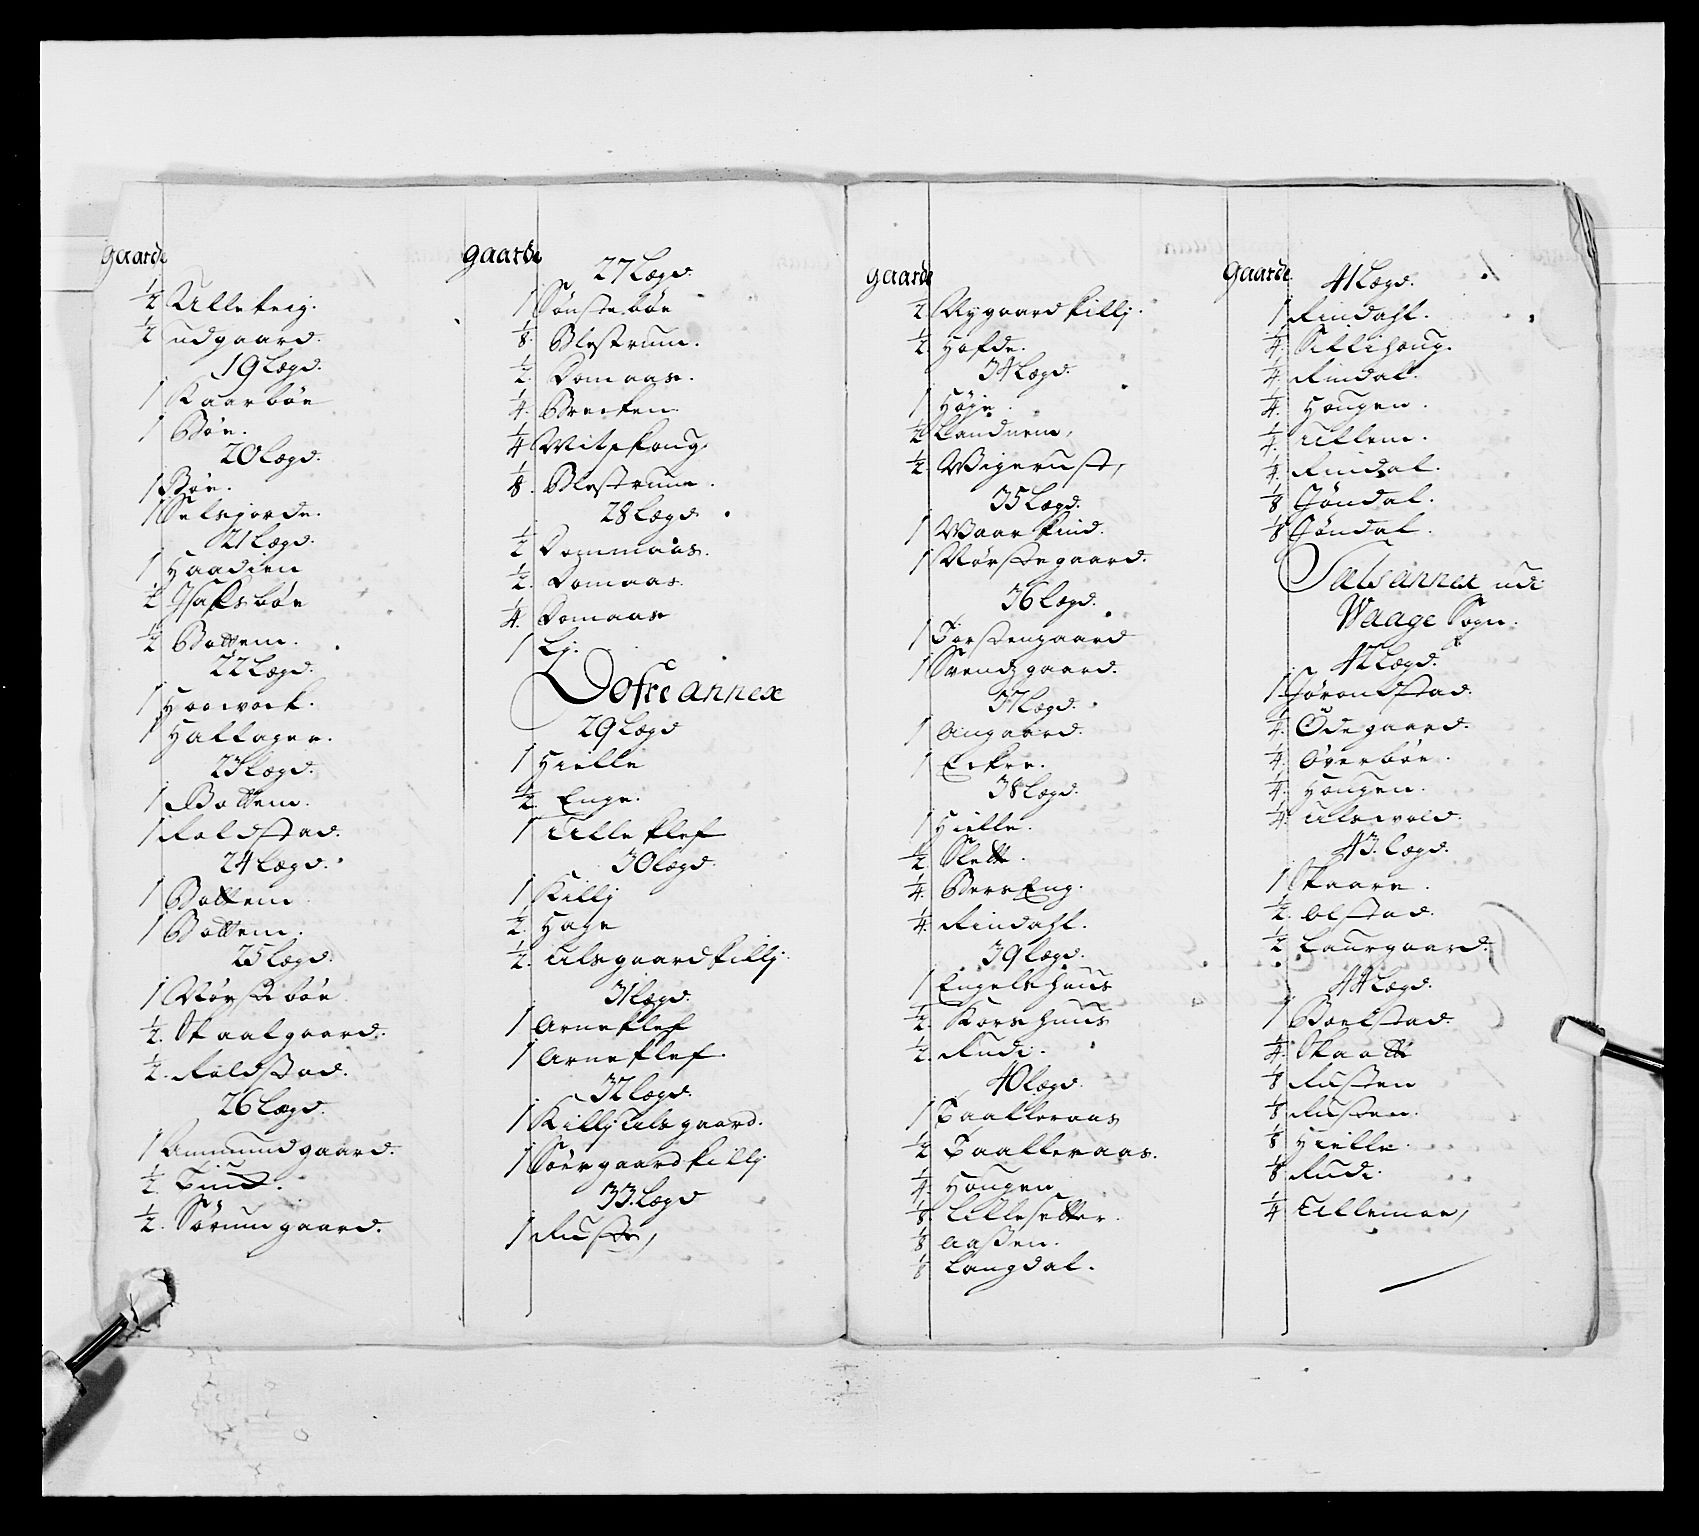 Gaarde
1/2 Ulleveig.
1/2 udgaard.
19 Lægd.
1 Kaarbøe
1 Bøe.
20 Lægd.
1 Bøe.
1 Selsjorde.
21 Lægd.
1 Haadien
1/2 Isaksbøe
1/2 Bottem.
22 Lægd.
1 Haarvork.
1 Hallager.
23 Lægd.
1 Bottem.
1 Foldstad.
24 Lægd.
1 Bottem
1 Bottem.
25 Lægd.
1 Nørstebøe
1/2 Skaalgaard.
1/2 Foldstad.
26 Lægd.
1 Ammundgaard.
1/2 Tiut.
1/2 Sørumgaard.
Gaarde
27 Lægd.
1 Sønstebøe
1/8 Blestrum.
1/2 Domaas.
1/4 Brecken
1/4 Mitshoug.
1/8 Blestrum.
28 Lægd
1/2 Dommaas.
1/2 Domaas.
1/4 Domaas
1 Lj.
Dofre annex
29 Lægd
1 Hielle
1/2 Enge.
1 Ulleklef
30 Lægd
1 Killj
1/2 Hage
1/2 Ulsgaard killj.
31 Lægd.
1 Arneklef
1 Arneklef.
32 Lægd.
1 Killj Ulsgaard.
1 Søergaard killj
33. Lægd
1 Ruste,
Gaarde
1/2 Nygaard killj.
1/2 Hofde.
34 Lægd.
1 Høje.
1/2 Landnem,
1/2 Wigerust,
35 Lægd.
1 Waarkind.
1 Nørstegaard.
36 Lægd.
1 Torstengaard
1 Svendsgaard.
37 Lægd.
1 Angaard.
1 Eckre.
38 Lægd.
1 Hielle.
1/2 Slette.
1/4 BersEng.
1/4 Rindahl.
39 Lægd.
1 Engelshuus
1/2 Korshuus
1/2 Rudi.
40 Lægd.
1 Taalleraas
1/2 Taalleraas.
1/4 Hougen
1/8 Lillesetter.
1/8 Aasen.
1/8 Langdal.
Gaarde
41 Lægd.
1 Rindahl.
1/4 Sillihoug.
1/4 Rindal.
1/4 Hougen.
1/4 Ullem.
1/4 Rindal.
1/8 Jøndal.
1/8 Jøndal.
Sels annex udi
Waage Sogn.
42 Lægd.
1 Jørondstad.
1/4 Ødegaard.
1/4 Øverbøe.
1/4 Hougen.
1/4 Ulsvold.
43. Lægd.
1 Skaare.
1/2 Olstad.
1/2 Laurgaard.
44 Lægd.
1 Boelstad.
1/4 Skaatt
1/8 Rusten
1/8 Rusten.
1/8 Hielle.
1/8 Rudi.
1/4 Ullemoe,